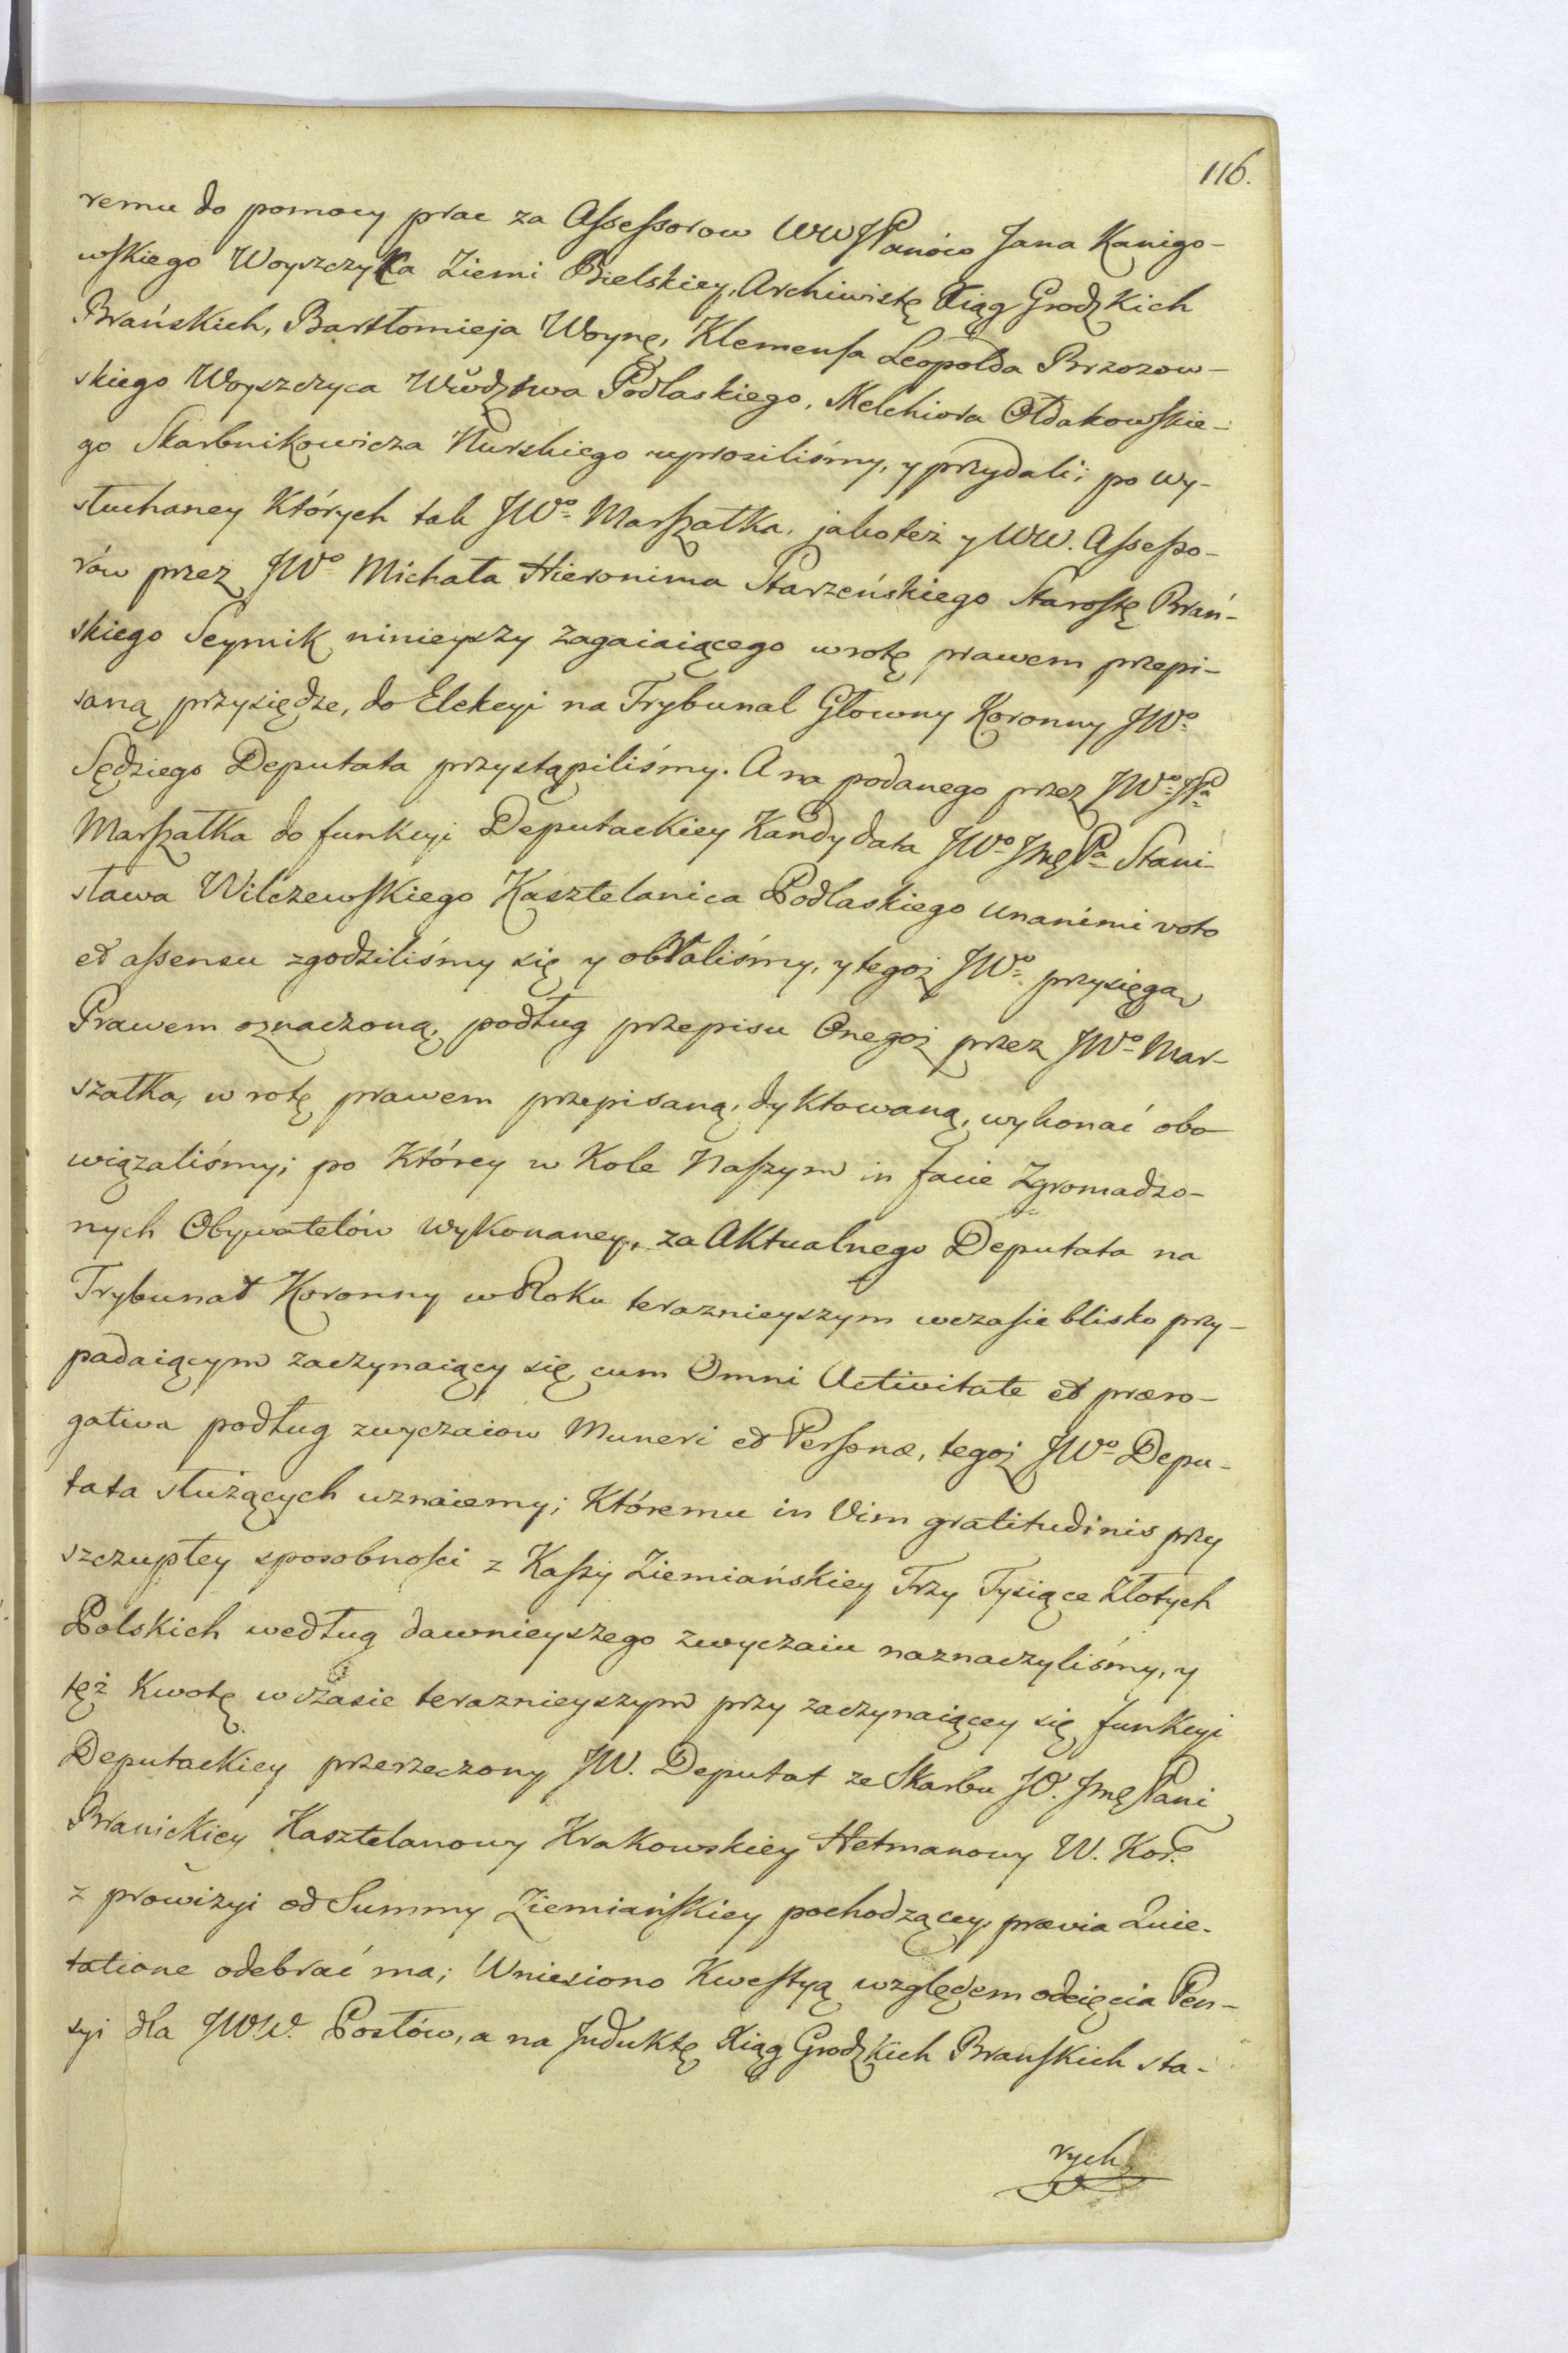 116.
remu do pomocy prac za Assessorow WWJPanów Jana Kanigo-
wskiego Woyszczyka Ziemi Bielskiey, Archiwistę Xiąg Grodzkich
Brańskich, Bartłomieja Woynę, Klemensa Leopolda Brzozow-
skiego Woyszczyca Wwdztwa Podlaskiego, Melchiora Ołdakowskie-
go Skarbnikowicza Nurskiego uprosiliśmy, y przydali; po wy-
słuchaney Których tak JWo Marszałka, jakoteż y WW. Assesso-
rów przez JWo Michała Hieronima Starzeńskiego Starostę Brań-
skiego Seymik ninieyszy zagaiaiącego w rotę prawem przepi-
saną przysiędze, do Elekcyi na Trybunal Głowny Koronny JWo
Sędziego Deputata przystąpiliśmy. A na podanego przez JWo JPa
Marszałka do funkcyi Deputackiey Kandydata JWo Jmę Pa Stani-
sława Wilczewskiego Kasztelanica Podlaskiego unanimi voto
et assensu zgodziliśmy się y obraliśmy, y tegoż JWo przysięgą
Prawem oznaczoną, podług przepisu Onegoż przez JWo Mar-
szałka, w rotę prawem przepisaną, dyktowaną, wykonać obo-
wiązaliśmy; po Którey w Kole Naszym in facie Zgromadzo-
nych Obywatelów wykonaney, za Aktualnego Deputata na
Trybunał Koronny w Roku teraznieyszym w czasie blisko przy-
padaiącym zaczynaiący się, cum Omni Activitate et præro-
gativa podług zwyczaiow Muneri et Personæ, tegoż JWo Depu-
tata służących uznaiemy; Któremu in Vim gratitudinis przy
szczupłey sposobności z Kassy Ziemiańskiey Trzy Tysiące Złotych
Polskich według dawnieyszego zwyczaiu naznaczyliśmy, y
tęż Kwotę w czasie teraznieyszym przy zaczynaiącey się funkcyi
Deputackiey przerzeczony JW. Deputat ze Skarbu JO. Jmę Pani
Branickiey Kasztelanowy Krakowskiey Hetmanowy W. Kor.
z prowizyi od Summy Ziemiańskiey pochodzącey, prævia Quie-
tatione odebrać ma; Wniesiono Kwestyą względem odcięcia Pen-
syi dla JWW. Posłów, a na Induktę Xiąg Grodzkich Branskich sta-
rych